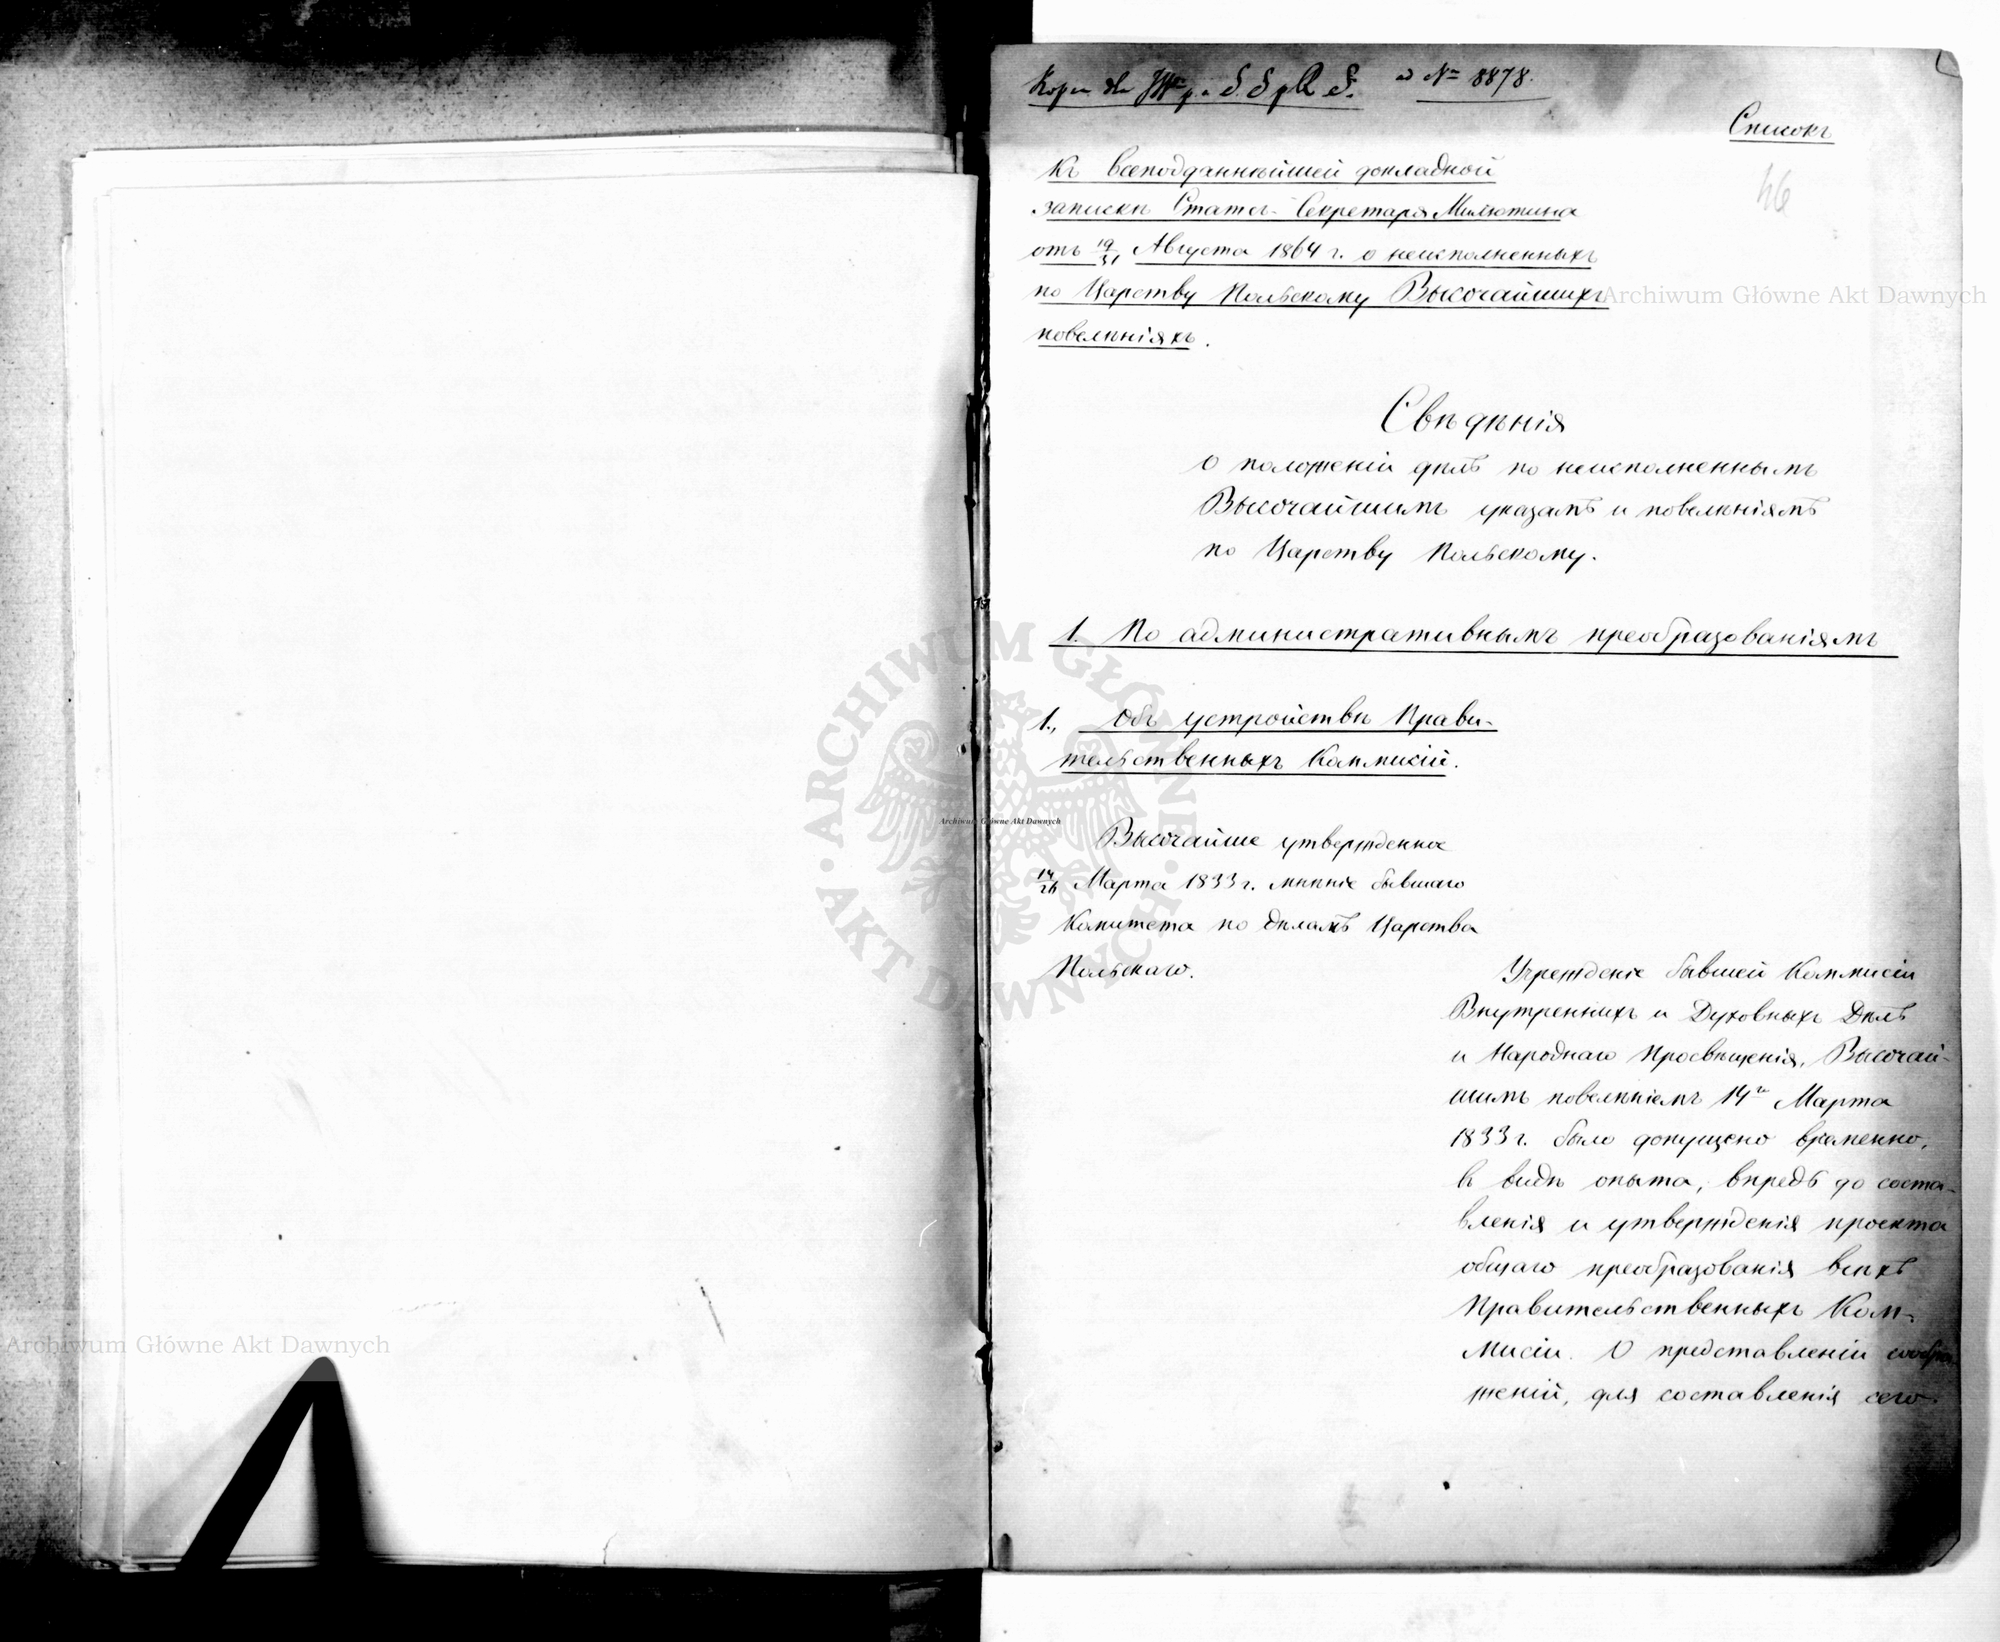 ad № 8878.
Списокъ
46
къ всеподданнѣйшей докладной
запискѣ Статсъ-Секретаря Милютина
отъ 19/31 Августа 1864 г. о неисполненныхъ
по Царству Польскому Высочайшихъ
повелѣніяхъ.
Archiwum Główne Akt Dawnych
Свѣдѣнія
о положеніи дѣлъ по неисполненнымъ
Высочайшимъ указамъ и повелѣніямъ
по Царству Польскому.
1. По административнымъ преобразованіямъ
1., Объ устройствѣ Прави-
тельственныхъ Коммисій.
ARCHIWUM GŁÓWNE AKT DAWNYCH
Archiwum Główne Akt Dawnych
Высочайше утвержденное
14/26 Марта 1833 г. мнѣніе бывшаго
Комитета по дѣламъ Царства
Польскаго.
Учрежденіе бывшей Коммисіи
Внутреннихъ и Духовныхъ Дѣлъ
и Народнаго Просвѣщенія, Высочай-
шимъ повелѣніемъ 14го Марта
1833 г. было допущено временно,
въ видѣ опыта, впредь до соста-
вленія и утвержденія проекта
общаго преобразованія всѣхъ
Правительственныхъ Ком-
мисіи. О представленіи сообра
женій, для составленія сего
Archiwum Główne Akt Dawnych